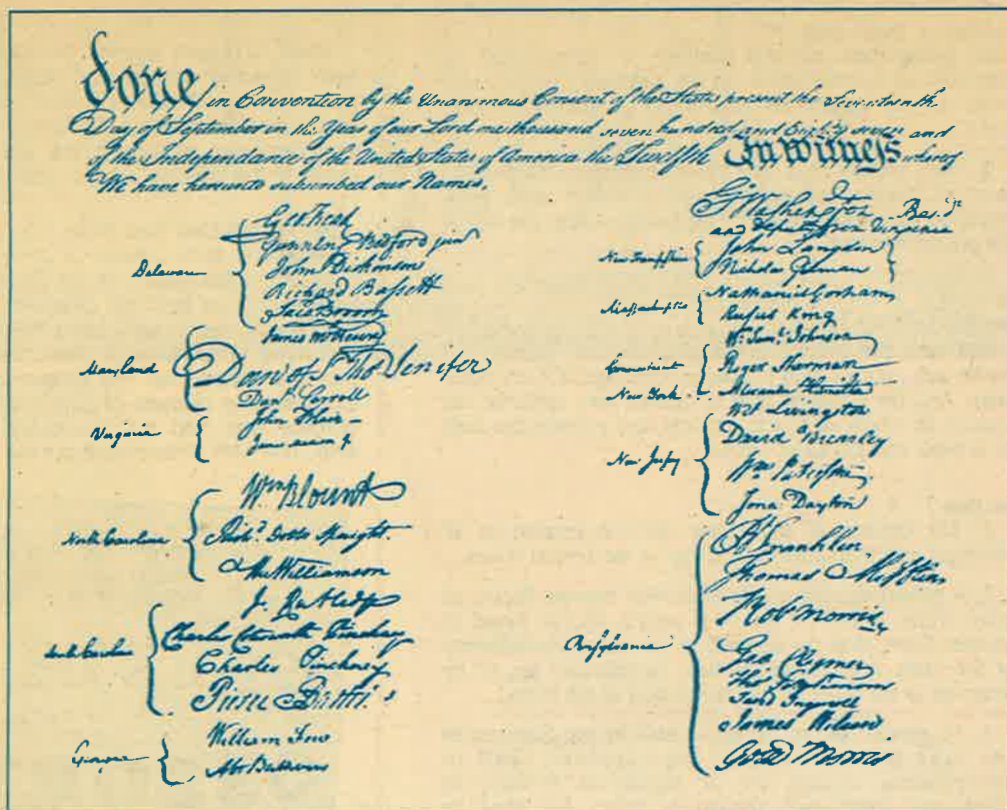 done in Convention by the Unanimous Consent of the States present the Seventeenth
Day of September in the Year of our Lord one thousand seven hundred and Eighty seven and
of the Independance of the United States of America the Twelfth In Witness whereof
We have hereunto subscribed our Names.
Delaware
Geo: Read
Gunning Bedford jun
John Dickinson
Richard Bassett
Jaco: Broom
Maryland
James McHenry
Dan of St Thos Jenifer
Danl Carroll
Virginia
John Blair —
James Madison Jr
North Carolina
Wm Blount
Richd. Dobbs Spaight.
Hu Williamson
South Carolina
J. Rutledge
Charles Cotesworth Pinckney
Charles Pinckney
Pierce Butler
Georgia
William Few
Abr Baldwin
Go Washington Presidt
and deputy from Virginia
New Hampshire
John Langdon
Nicholas Gilman
Massachusetts
Nathaniel Gorham
Rufus King
Connecticut
Wm. Saml. Johnson
Roger Sherman
New York
Alexander Hamilton
New Jersey
Wil: Livingston
David Brearley
Wm Paterson
Jona: Dayton
Pensylvania
B Franklin
Thomas Mifflin
Robt Morris
Geo. Clymer
Thos. FitzSimons
Jared Ingersoll
James Wilson
Gouv Morris